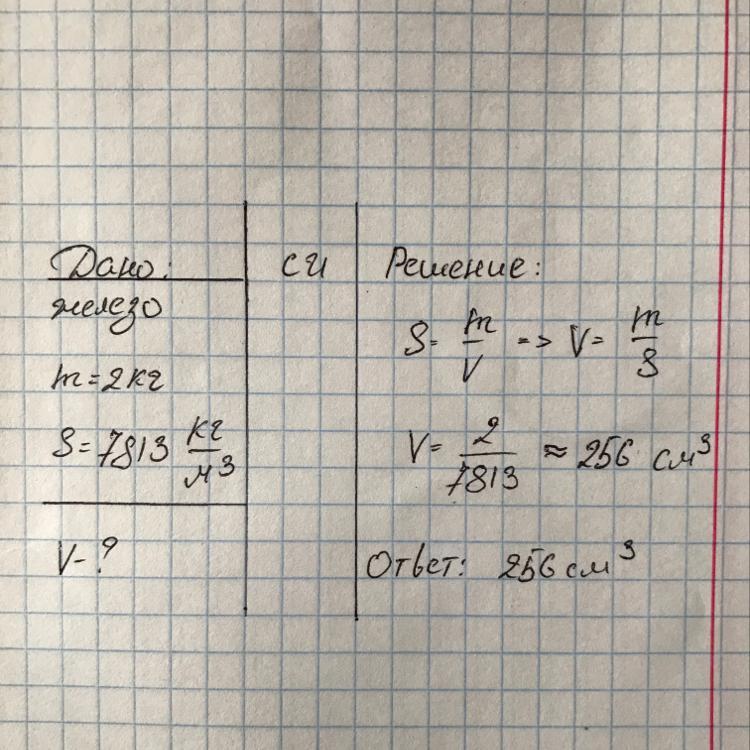 Дано:
железо
m = 2 кг
S = 7813 кг/м³
V - ?
СИ
Решение:
S = m/V => V = m/S
V = 2/7813 ≈ 256 см³
Ответ: 256 см³